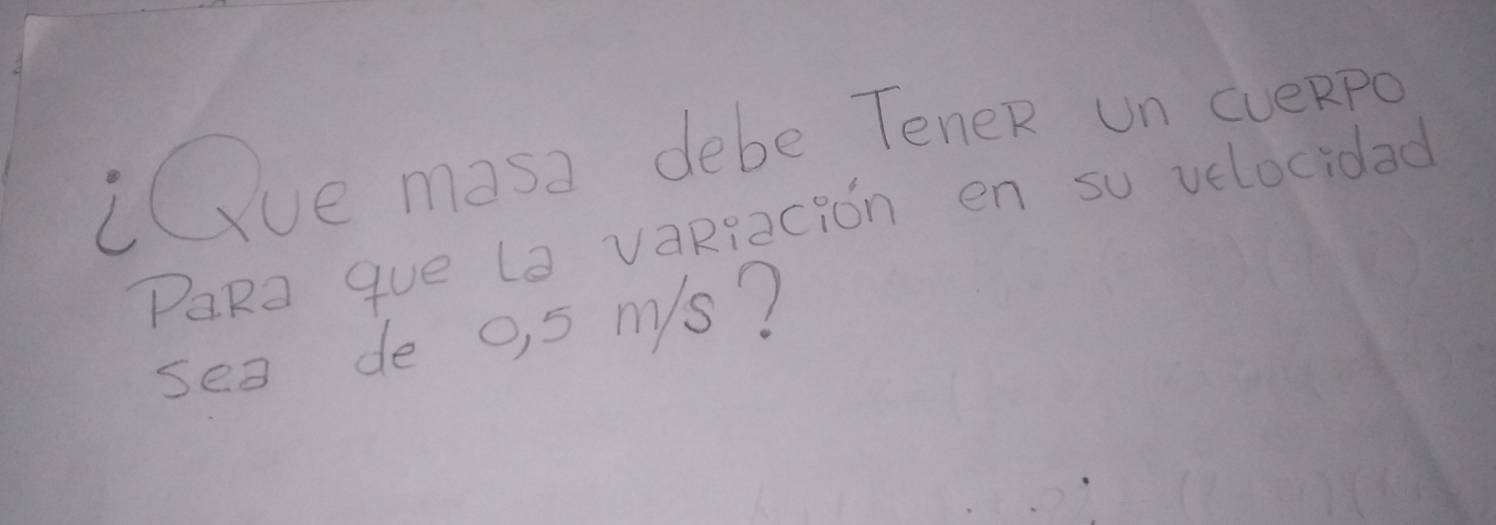 ¿Que masa debe Tener un cuerpo
Para que la variación en su velocidad
sea de 0,5 m/s?